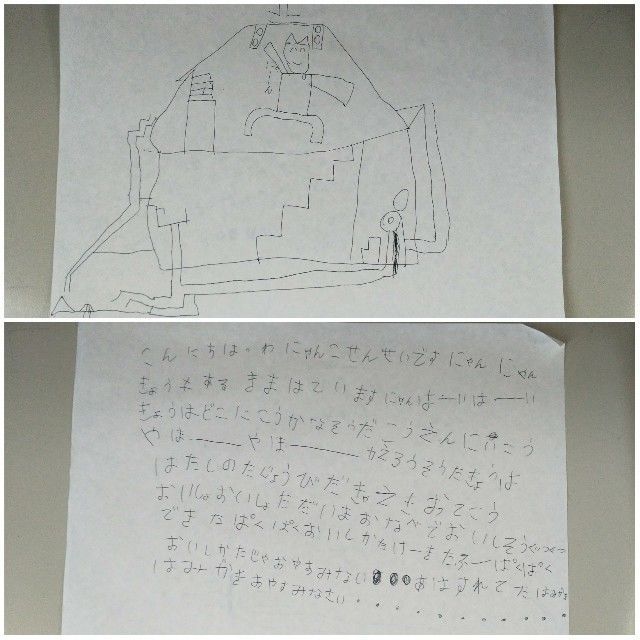 こんにちは。わにゃんこせんせいです にゃんにゃん
きょうもする きまはていますにゃんはーいはーい
きょうはどこにこうかなそうだこうえんにいこう
やはーやはーかえろうそうだきょうは
はたしのたじょうびだ きえさおてこう
おいしょおいしょただいまおなべでおいしそうぐつぐつ
できたぱくぱくおいしかたけーきもたふーぱくぱく
おいしかたじゃおやすみない あはすれてたはみがき
はみがき おやすみなさい・・・・・・・・・・